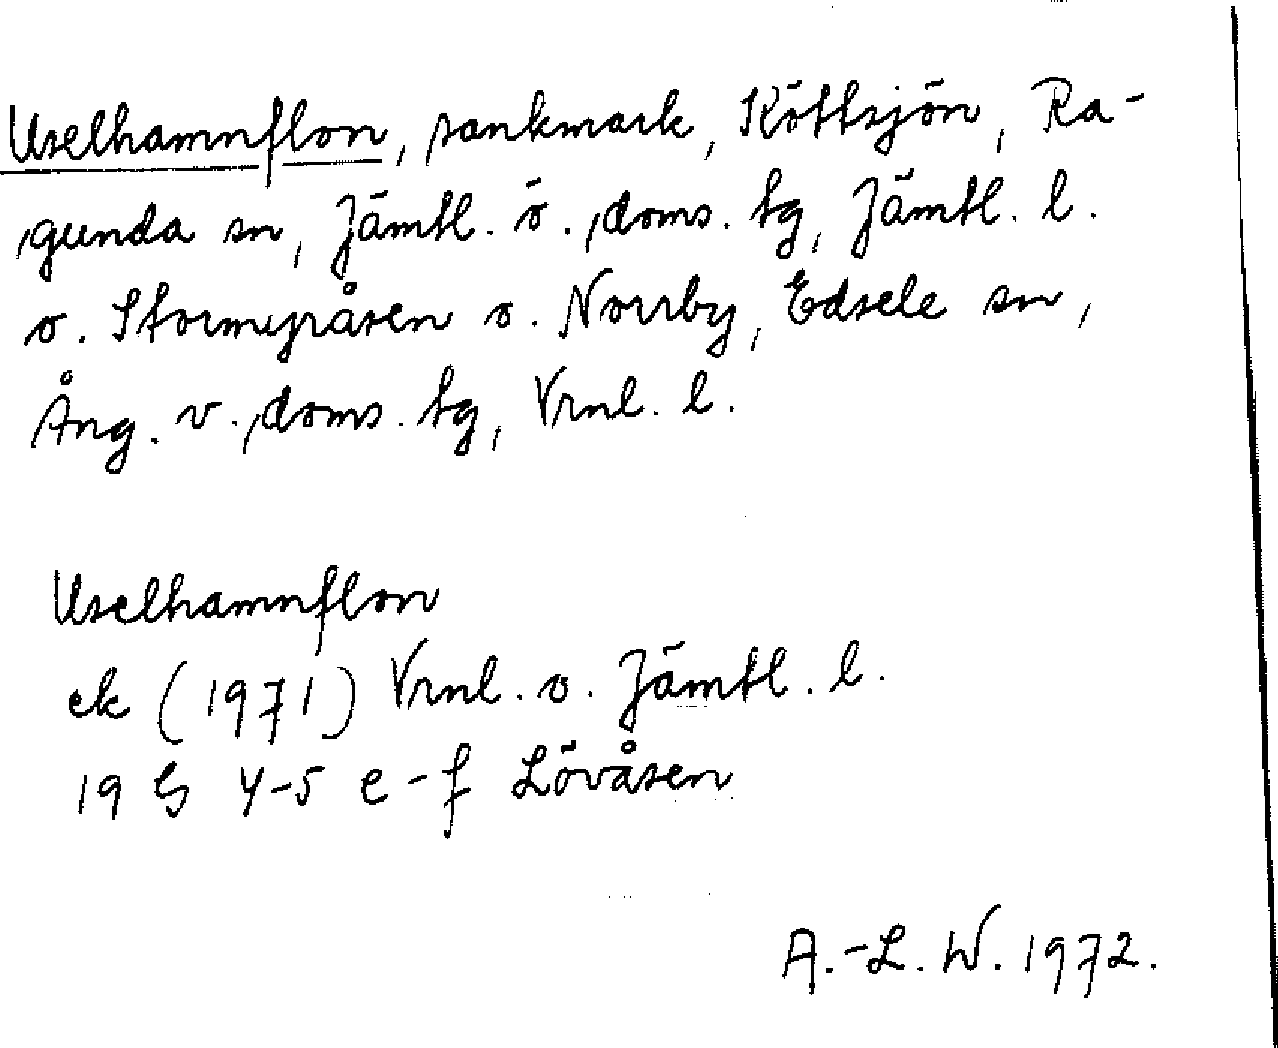 Uselhamnflon, sankmark, Köttsjön, Ra-
gunda sn, Jämtl. ö. doms. tg, Jämtl. l.
o. Stormyråsen o. Norrby, Edsele sn,
Ång. v. doms. tg, Vrnl. l.
Uselhamnflon
ek (1971) Vrnl. o. Jämtl. l.
19 G 4-5 e-f Lövåsen
A.-L. W. 1972.